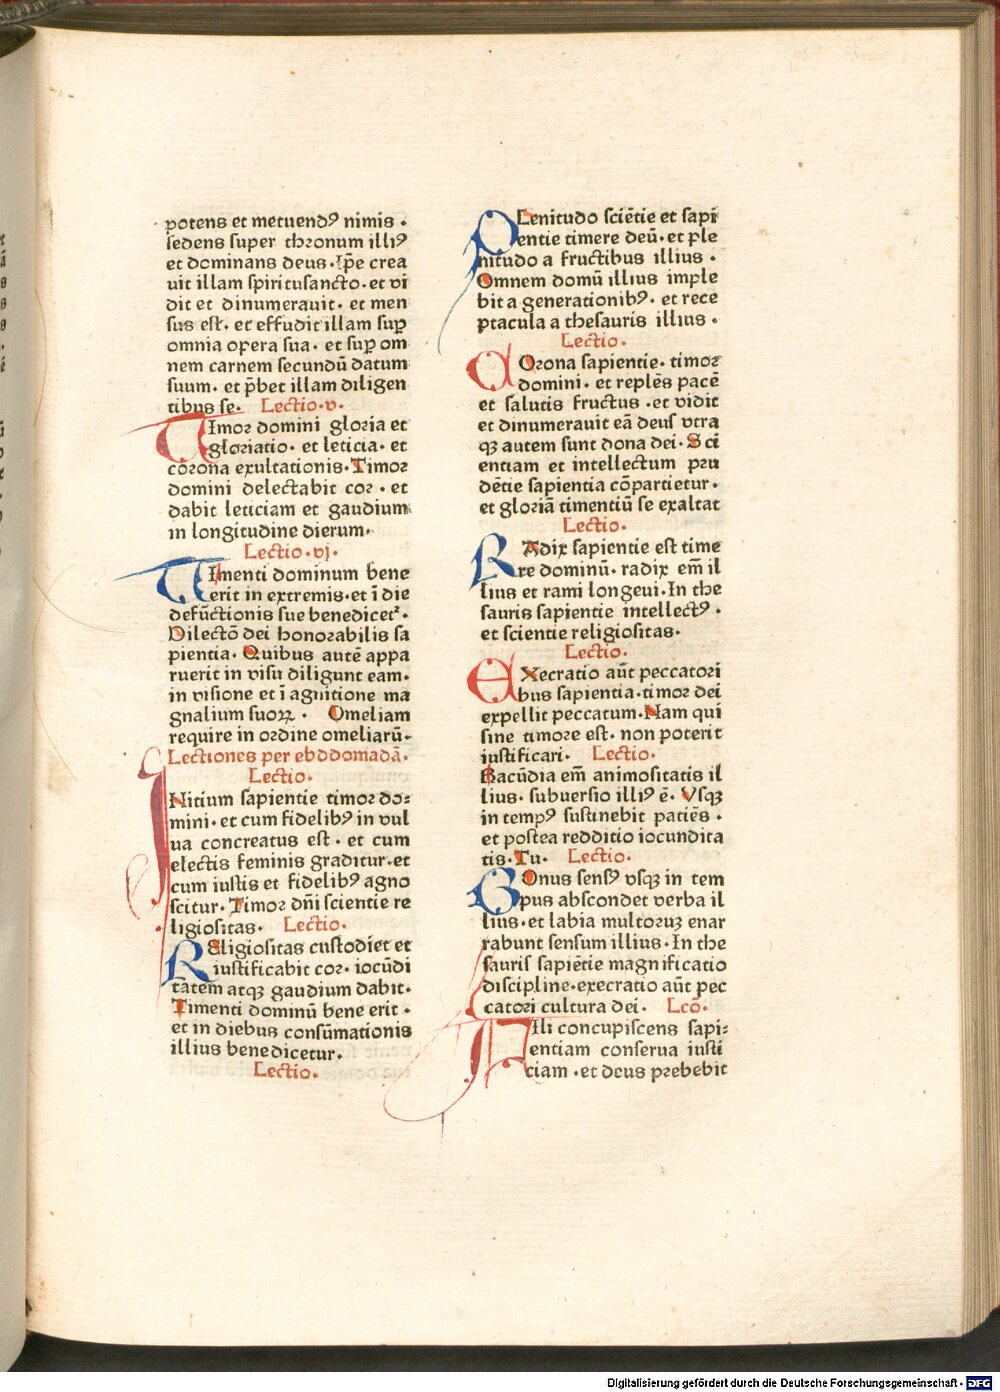 potens et metuendꝰ nimis .
sedens super thronum illiꝰ
et dominans deus. ip̄e crea
uit illam spiritusancto. et vi
dit et dinumerauit. et men
sus est. et effudit illam suꝑ
omnia opera sua. et suꝑ om
nem carnem secundū datum
suum. et p̄bet illam diligen
tibus se. Lectio.v.
TImor domini gloria et
gloriatio. et leticia. et
corona exultationis. Timor
domini delectabit cor. et
dabit leticiam et gaudium
in longitudine dierum.
Lectio.vj.
TImenti dominum bene
erit in extremis. et ī die
defūctionis sue benedicet᷑.
Dilectō dei honorabilis sa
pientia. Quibus autē appa
ruerit in visu diligunt eam.
in visione et ī agnitione ma
gnalium suoꝝ. Omeliam
require in ordine omeliarū.
Lectiones per ebdomadā.
Lectio.
INitium sapientie timor do=
mini. et cum fidelibꝰ in vul
ua concreatus est. et cum
electis feminis graditur. et
cum iustis et fidelibꝰ agno
scitur. Timor dn̄i scientie re
ligiositas. Lectio.
REligiositas custodiet et
iustificabit cor. iocūdi
tatem atqꝫ gaudium dabit.
Timenti dominū bene erit.
et in diebus consūmationis
illius benedicetur.
Lectio.
PLenitudo sciētie et sapi
entie timere deū. et ple
nitudo a fructibus illius.
Omnem domū illius imple
bit a generationibꝰ. et rece
ptacula a thesauris illius.
Lectio.
COrona sapientie. timor
domini. et replēs pacē
et salutis fructus. et vidit
et dinumerauit eā deus vtra
qꝫ autem sunt dona dei. Sci
entiam et intellectum pru
dētie sapientia cōpartietur.
et gloriā timentiū se exaltat
Lectio.
RAdix sapientie est time
re dominū. radix em̄ il
lius et rami longeui. In the
sauris sapientie intellectꝰ.
et scientie religiositas.
Lectio.
EXecratio aūt peccatori
bus sapientia. timor dei
expellit peccatum. Nam qui
sine timore est. non poterit
iustificari. Lectio.
Bacūdia em̄ animositatis il
lius. subuersio illiꝰ ē. Vsqꝫ
in tempꝰ sustinebit patiēs.
et postea redditio iocundita
tis. Tu. Lectio.
BOnus sensꝰ vsqꝫ in tem
pus abscondet verba il
lius. et labia multoruꝫ enar
rabunt sensum illius. In the
sauris sapiētie magnificatio
discipline. execratio aūt pec
catori cultura dei. Lcō.
FIli concupiscens sapi=
entiam conserua iusti
ciam. et deus prebebit
Digitalisierung gefördert durch die Deutsche Forschungsgemeinschaft - DFG